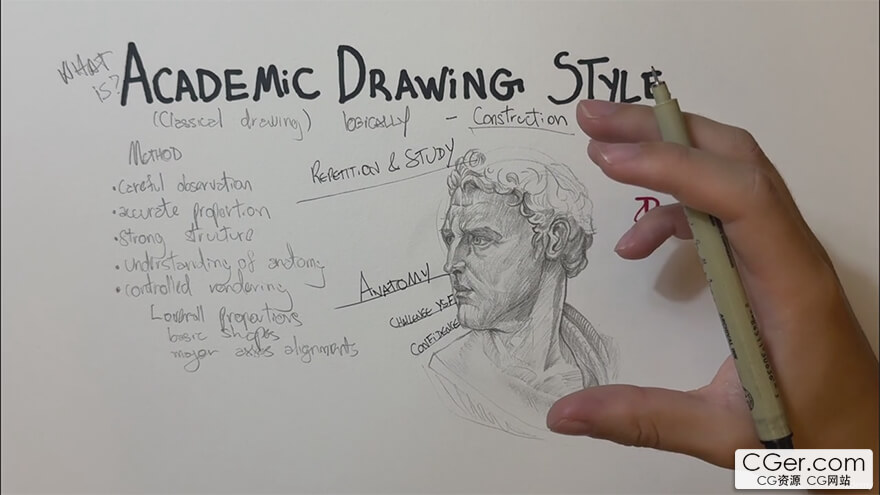 WHAT IS?
ACADEMIC DRAWING STYLE
(Classical drawing) LOGICALLY - Construction
METHOD
REPETITION & STUDY
• careful observation
• accurate proportion
• strong structure
• understanding of anatomy
• controlled rendering
ANATOMY
CHALLENGE YSELF
CONFIDENCE
Loverall proportions
basic shapes
major axises alignments
CGer.com
CG资源 CG网站